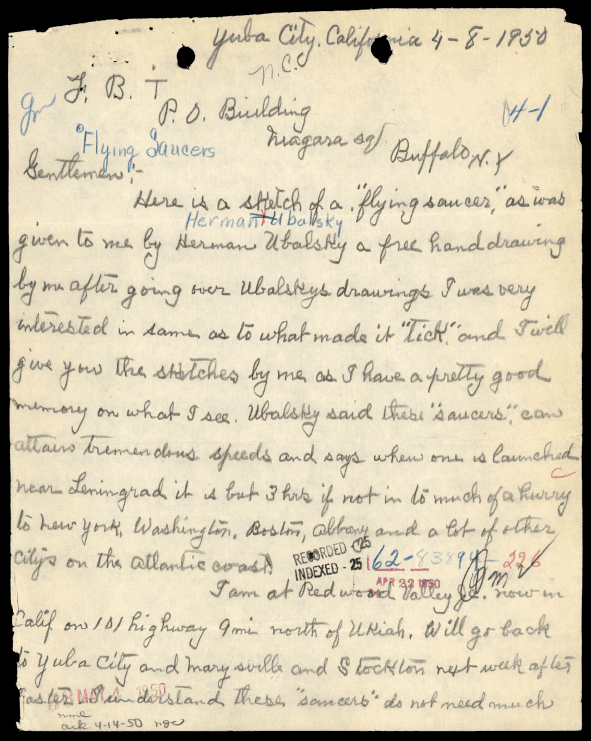 Yuba City, California 4-8-1950
N.C.C
F. B. I
P.O. Building
14-1
Niagara sq
"Flying Saucers
Buffalo, N.Y
Gentlemen;-
Here is a sketch of a "flying saucer," as was
Herman Ubalsky
given to me by Herman Ubalsky a free hand drawing
by me after going over Ubalskys drawings I was very
interested in same as to what made it "tick," and I will
give you the sketches by me as I have a pretty good
memory on what I see. Ubalsky said these "saucers", can
attain tremendous speeds and says when one is launched
near Leningrad it is but 3 hrs if not in to much of a hurry
to New York, Washington, Boston, Albany and a lot of other
citys on the atlantic coast.
RECORDED - 25
INDEXED - 25
62-83894-226
APR 22 1950
I am at Redwood Valley now in
Calif on 101 highway 9 mi north of Ukiah. Will go back
to Yuba City and Marysville and Stockton next week after
Easter. I understand these "saucers" do not need much
1950
ack 4-14-50